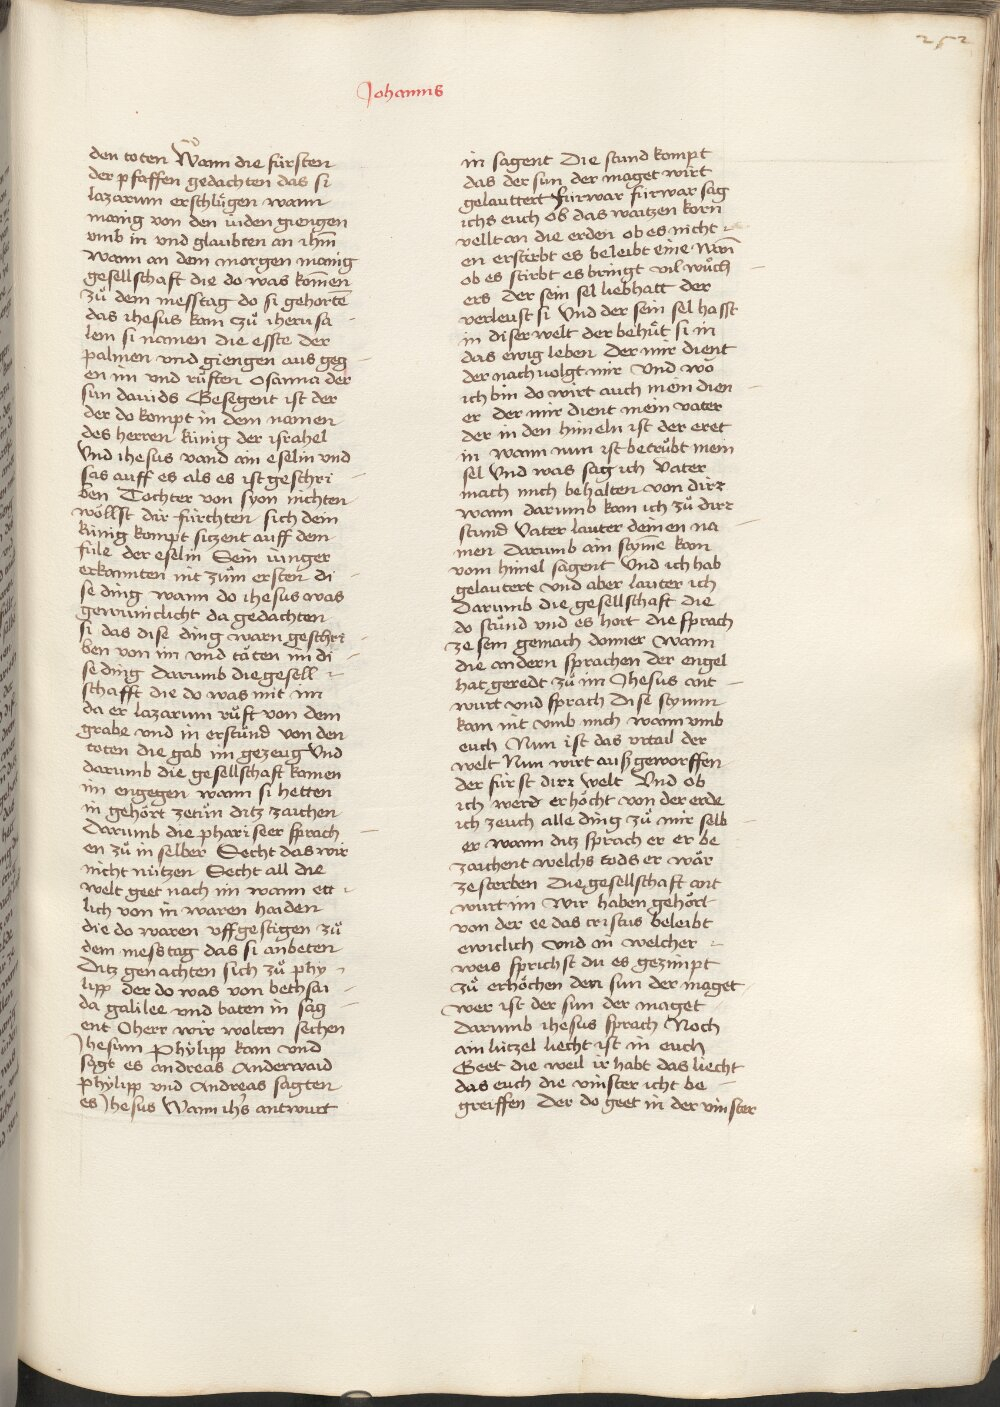 252
Johannis
den toten Wann die fürsten
der pfaffen gedachten das si
lazarum erschlůgen wann
manig von den iuden giengen
vmb in vnd glaubten an ihm̄
Wann an dem morgen manig
gesellschaft die do was kom̄en
zů dem messtag do si gehortē
das ihesus kam zů iherusa
lem si namen die esste der
palmen vnd giengen aus geg
en im vnd růften Osanna der
sun dauids Gesegent ist der
der do kompt in dem namen
des herren künig der israhel
Vnd ihesus vand ain eselin vnd
sas auff es als es ist geschri
ben Tochter von syon nichten
wöllst dir fürchten sich dein
künig kompt siczent auff dem
füle der eselin Sein iunger
erkannten nit zům ersten di
se ding wann do ihesus was
gewunclicht da gedachten
si das dise ding warn geschri
ben von im vnd täten im di
se ding Darumb die gesell
schafft die do was mit im
da er lazarum růft von dem
grabe vnd in erstůnd von den
toten die gab im gezeug Vnd
darumb die gesellschaft kamen
im engegen wann si hetten
in gehört zetůn ditz zaichen
Darumb die phariseer sprach
en zů in selber Secht das wir
nicht nützen Secht all die
welt geet nach im wann ett
lich von in waren haiden
die do waren vffgestigen zů
dem messtag das si anbeten
Ditz genachten sich zů phy
lipp der do was von bethsai
da galilee vnd baten in sag
ent O herr wir wolten sechen
Jhesum Phylipp kam vnd
sagt es andreas Anderwaid
phylipp vnd Andreas sagten
es Jhesus Wann ih's antwurt
in sagent Die stund kompt
das der sun der maget wirt
gelauttert Fürwar fürwar sag
ichs euch ob das waitzen korn
vellt an die erden ob es nicht
en erstirbt es beleibt eine Wan̄
ob es stirbt es bringt vil wůch
ers Der sein sel liebhatt der
verleust si Vnd der sein sel hasst
in diser welt der behůt si in
das ewig leben Der mir dient
der nachuolgt mir Vnd wo
ich bin do wirt auch mein dien
er der mir dient mein vater
der in den himeln ist der eret
in wann nun ist betrůbt mein
sel Vnd was sag ich Vater
mach mich behalten von dirz
wann darumb kam ich zů dirr
stund Vater lauter deinen na
men Darumb ain stym̄e kam
vom himel sagent Vnd ich hab
gelautert vnd aber lauter ich
Darumb die gesellschaft die
do stůnd vnd es hort die sprach
ze sein gemach donner Wann
die andern sprachen der engel
hat geredt zů im Jhesus ant
wurt vnd sprach Dise stymm
kam nit vmb mich wann vmb
euch Nun ist das vrtail der
welt Nun wirt auß geworffen
der fürst dirz welt Vnd ob
ich werd erhöcht von der erde
ich zeuch alle ding zů mir selb
er wann ditz sprach er er be
zaichent welchs tods er wär
ze sterben Die gesellschaft ant
wurt im Wir haben gehört
von der ee das cristus beleibt
ewiclich vnd in welcher
weis sprichst du es gezimpt
zů erhöchen den sun der maget
wer ist der sun der maget
Darumb ihesus sprach Noch
ain lützel liecht ist in euch
Geet die weil ir habt das liecht
das euch die vinster icht be
greiffen Der do geet in der vinster